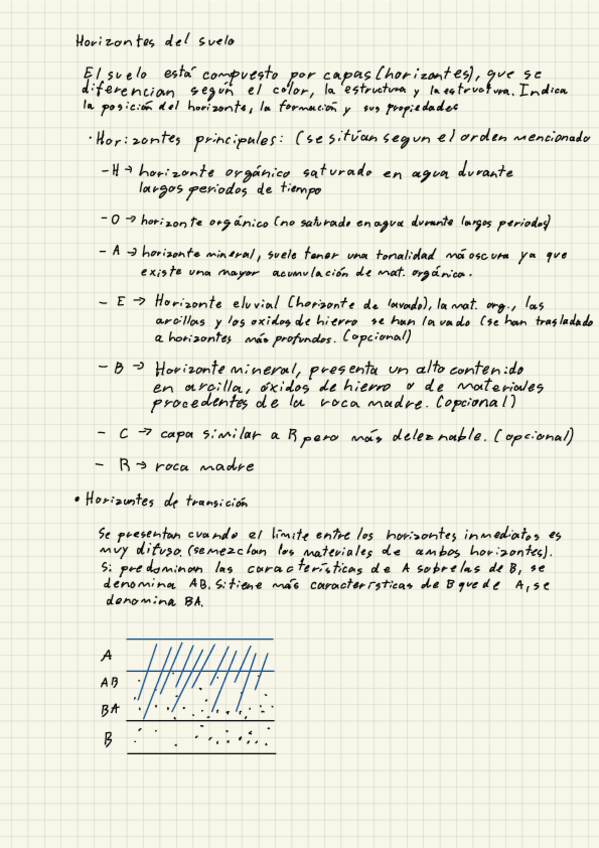 Horizontes del suelo
El suelo está compuesto por capas (horizontes), que se
diferencian según el color, la estructura y la estructura. Indica
la posición del horizonte, la formación y sus propiedades
· Horizontes principales: (se sitúan segun el orden mencionado
- H → horizonte orgánico saturado en agua durante
largos periodos de tiempo
- O → horizonte orgánico (no saturado en agua durante largos periodos)
- A → horizonte mineral, suele tener una tonalidad más oscura ya que
existe una mayor acumulación de mat. orgánica.
- E → Horizonte eluvial (horizonte de lavado), la mat. org., las
arcillas y los oxidos de hierro se han lavado (se han trasladado
a horizontes más profundos. (opcional)
- B → Horizonte mineral, presenta un alto contenido
en arcilla, óxidos de hierro o de materiales
procedentes de la roca madre. (opcional)
- C → capa similar a R pero más deleznable. (opcional)
- R → roca madre
• Horizontes de transición
Se presentan cuando el límite entre los horizontes inmediatos es
muy difuso. (se mezclan los materiales de ambos horizontes).
Si predominan las características de A sobre las de B, se
denomina AB. Si tiene más características de B que de A, se
denomina BA.
A
AB
BA
B